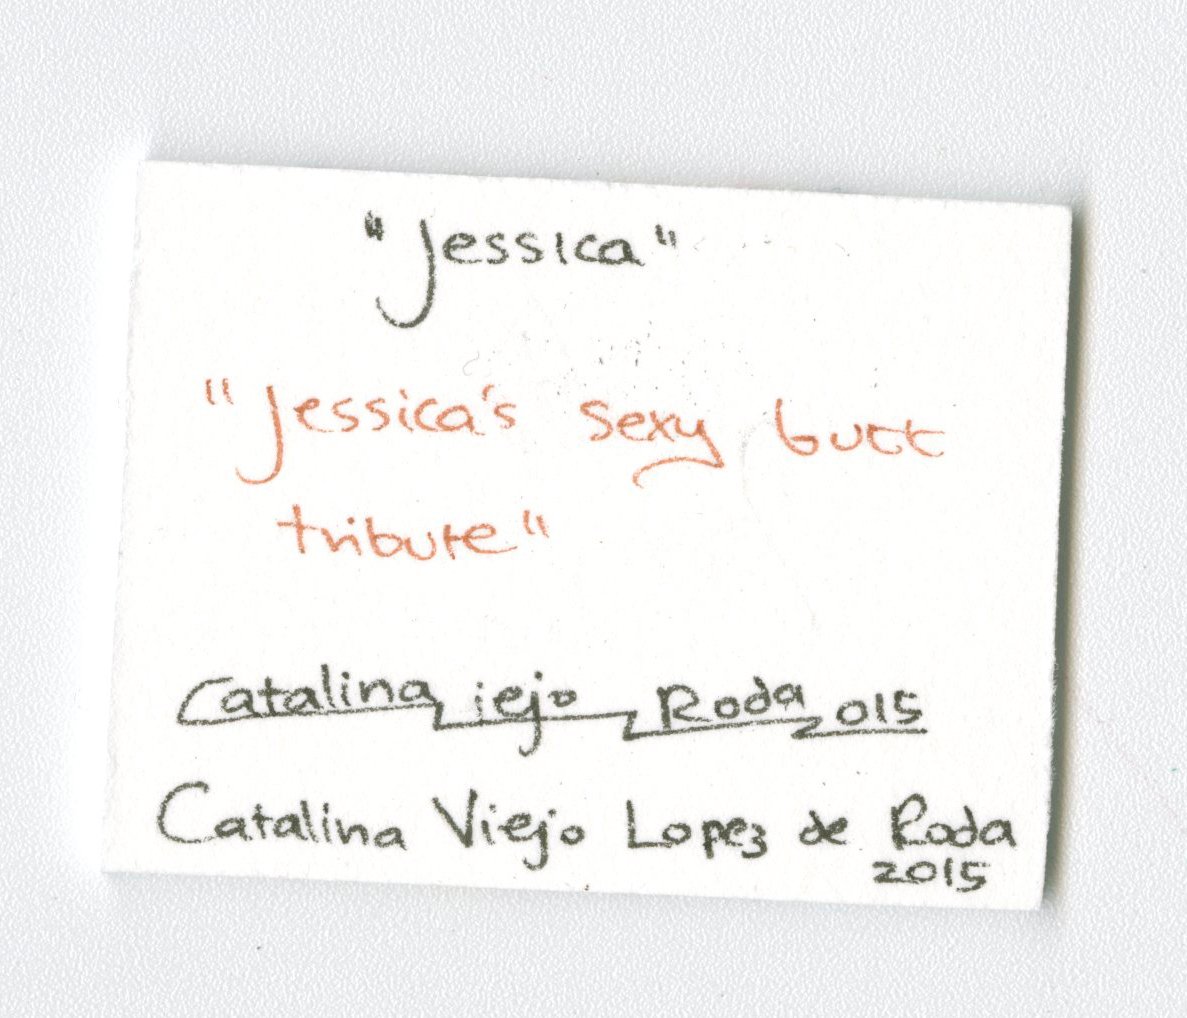 "Jessica"
"Jessica's sexy butt
tribute"
Catalina iejo Roda 015
Catalina Viejo Lopez de Roda
2015